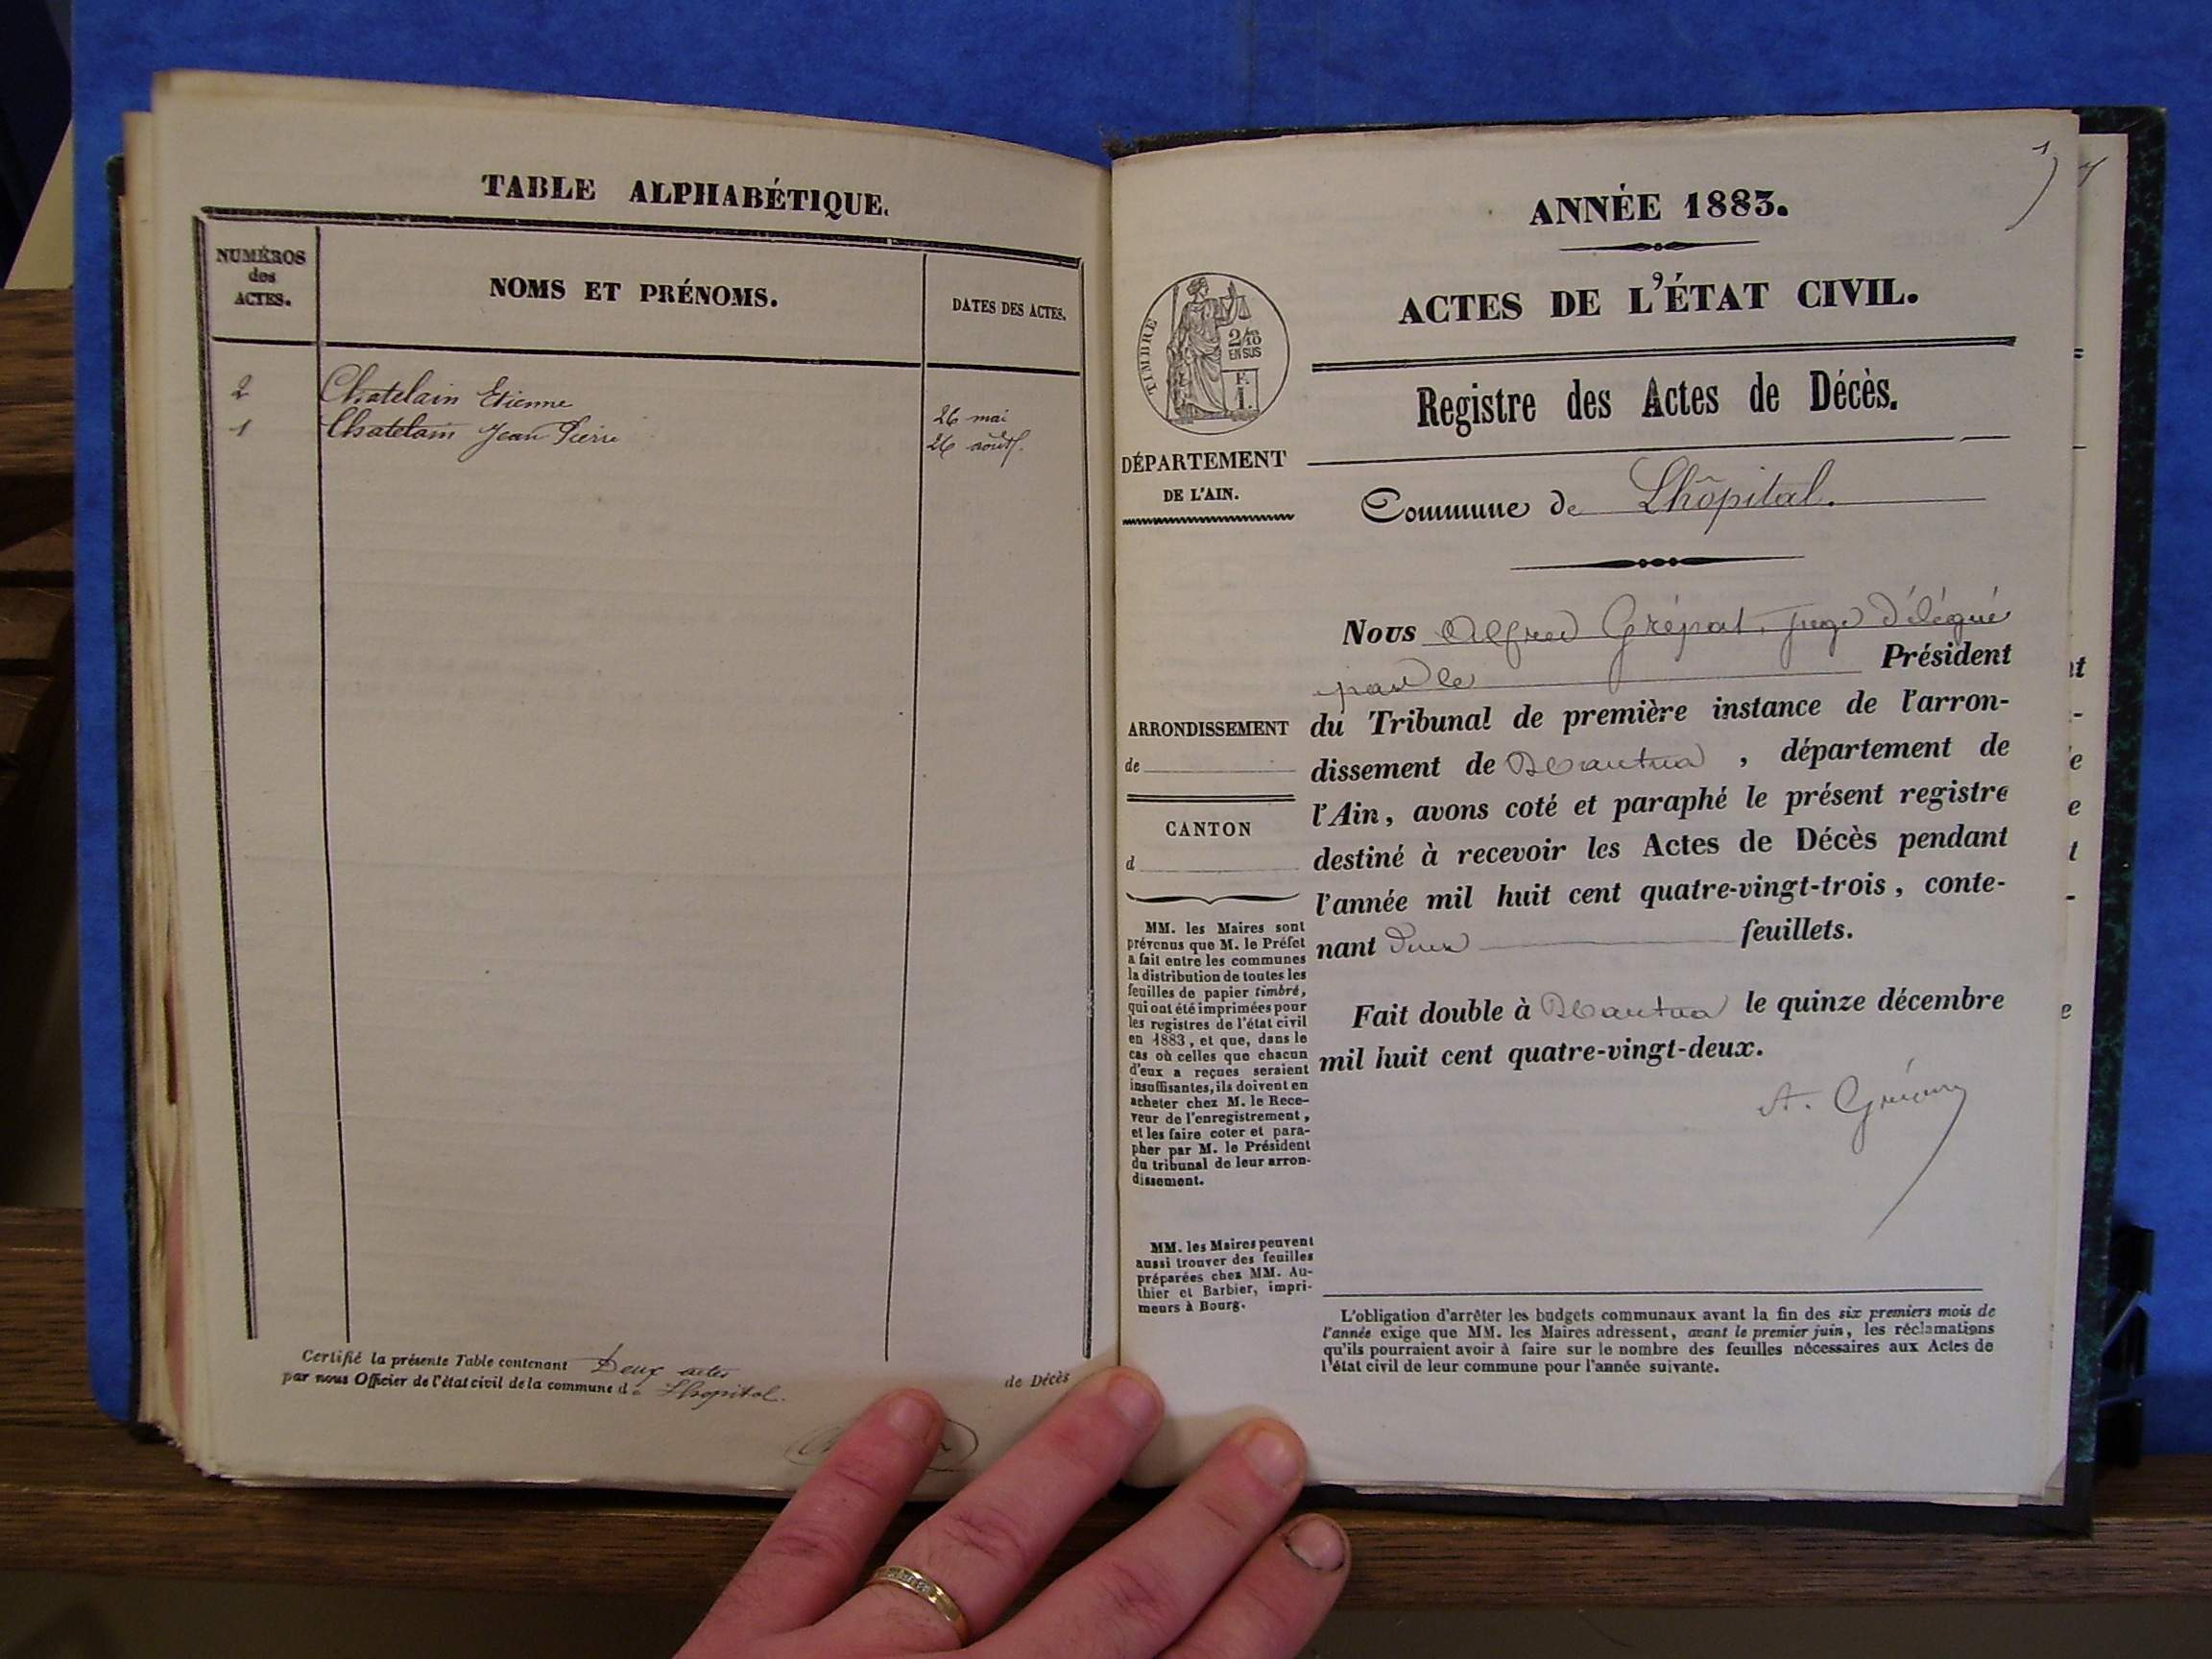 TABLE ALPHABÉTIQUE.
NUMÉROS
des
ACTES.
NOMS ET PRÉNOMS.
DATES DES ACTES.
2 Chatelain Etienne 26 mai
1 Chatelain Jean Pierre 26 août
Certifié la présente Table contenant Deux actes de Décès
par nous Officier de l'état civil de la commune de Lhopital.
ANNÉE 1883.
ACTES DE L'ÉTAT CIVIL.
TIMBRE
2/10
EN SUS
F.
1.
Registre des Actes de Décès.
DÉPARTEMENT
DE L'AIN.
Commune de Lhôpital.
Nous Alfred Grépat, juge délégué
par le Président
du Tribunal de première instance de l'arron-
dissement de Nantua, département de
l'Ain, avons coté et paraphé le présent registre
destiné à recevoir les Actes de Décès pendant
l'année mil huit cent quatre-vingt-trois, conte-
nant deux feuillets.
Fait double à Nantua le quinze décembre
mil huit cent quatre-vingt-deux.
ARRONDISSEMENT
de
CANTON
d
MM. les Maires sont
prévenus que M. le Préfet
a fait entre les communes
la distribution de toutes les
feuilles de papier timbré,
qui ont été imprimées pour
les registres de l'état civil
en 1883, et que, dans le
cas où celles que chacun
d'eux a reçues seraient
insuffisantes, ils doivent en
acheter chez M. le Rece-
veur de l'enregistrement,
et les faire coter et para-
pher par M. le Président
du tribunal de leur arron-
dissement.
MM. les Maires peuvent
aussi trouver des feuilles
préparées chez MM. Au-
thier et Barbier, impri-
meurs à Bourg.
L'obligation d'arrêter les budgets communaux avant la fin des six premiers mois de
l'année exige que MM. les Maires adressent, avant le premier juin, les réclamations
qu'ils pourraient avoir à faire sur le nombre des feuilles nécessaires aux Actes de
l'état civil de leur commune pour l'année suivante.